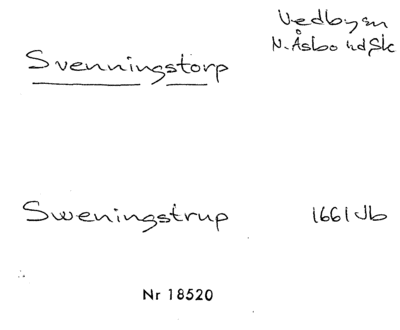 Vedby sn
N. Åsbo hd Sk
Svenningstorp
Sweningstrup 1661 Jb
Nr 18520